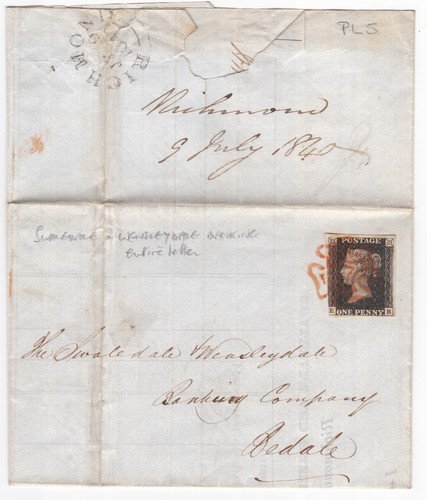 PL5
RICHMOND
Richmond
9 July 1840
entire letter
POSTAGE
ONE PENNY
The Swaledale & Wensleydale
Banking Company
Bedale